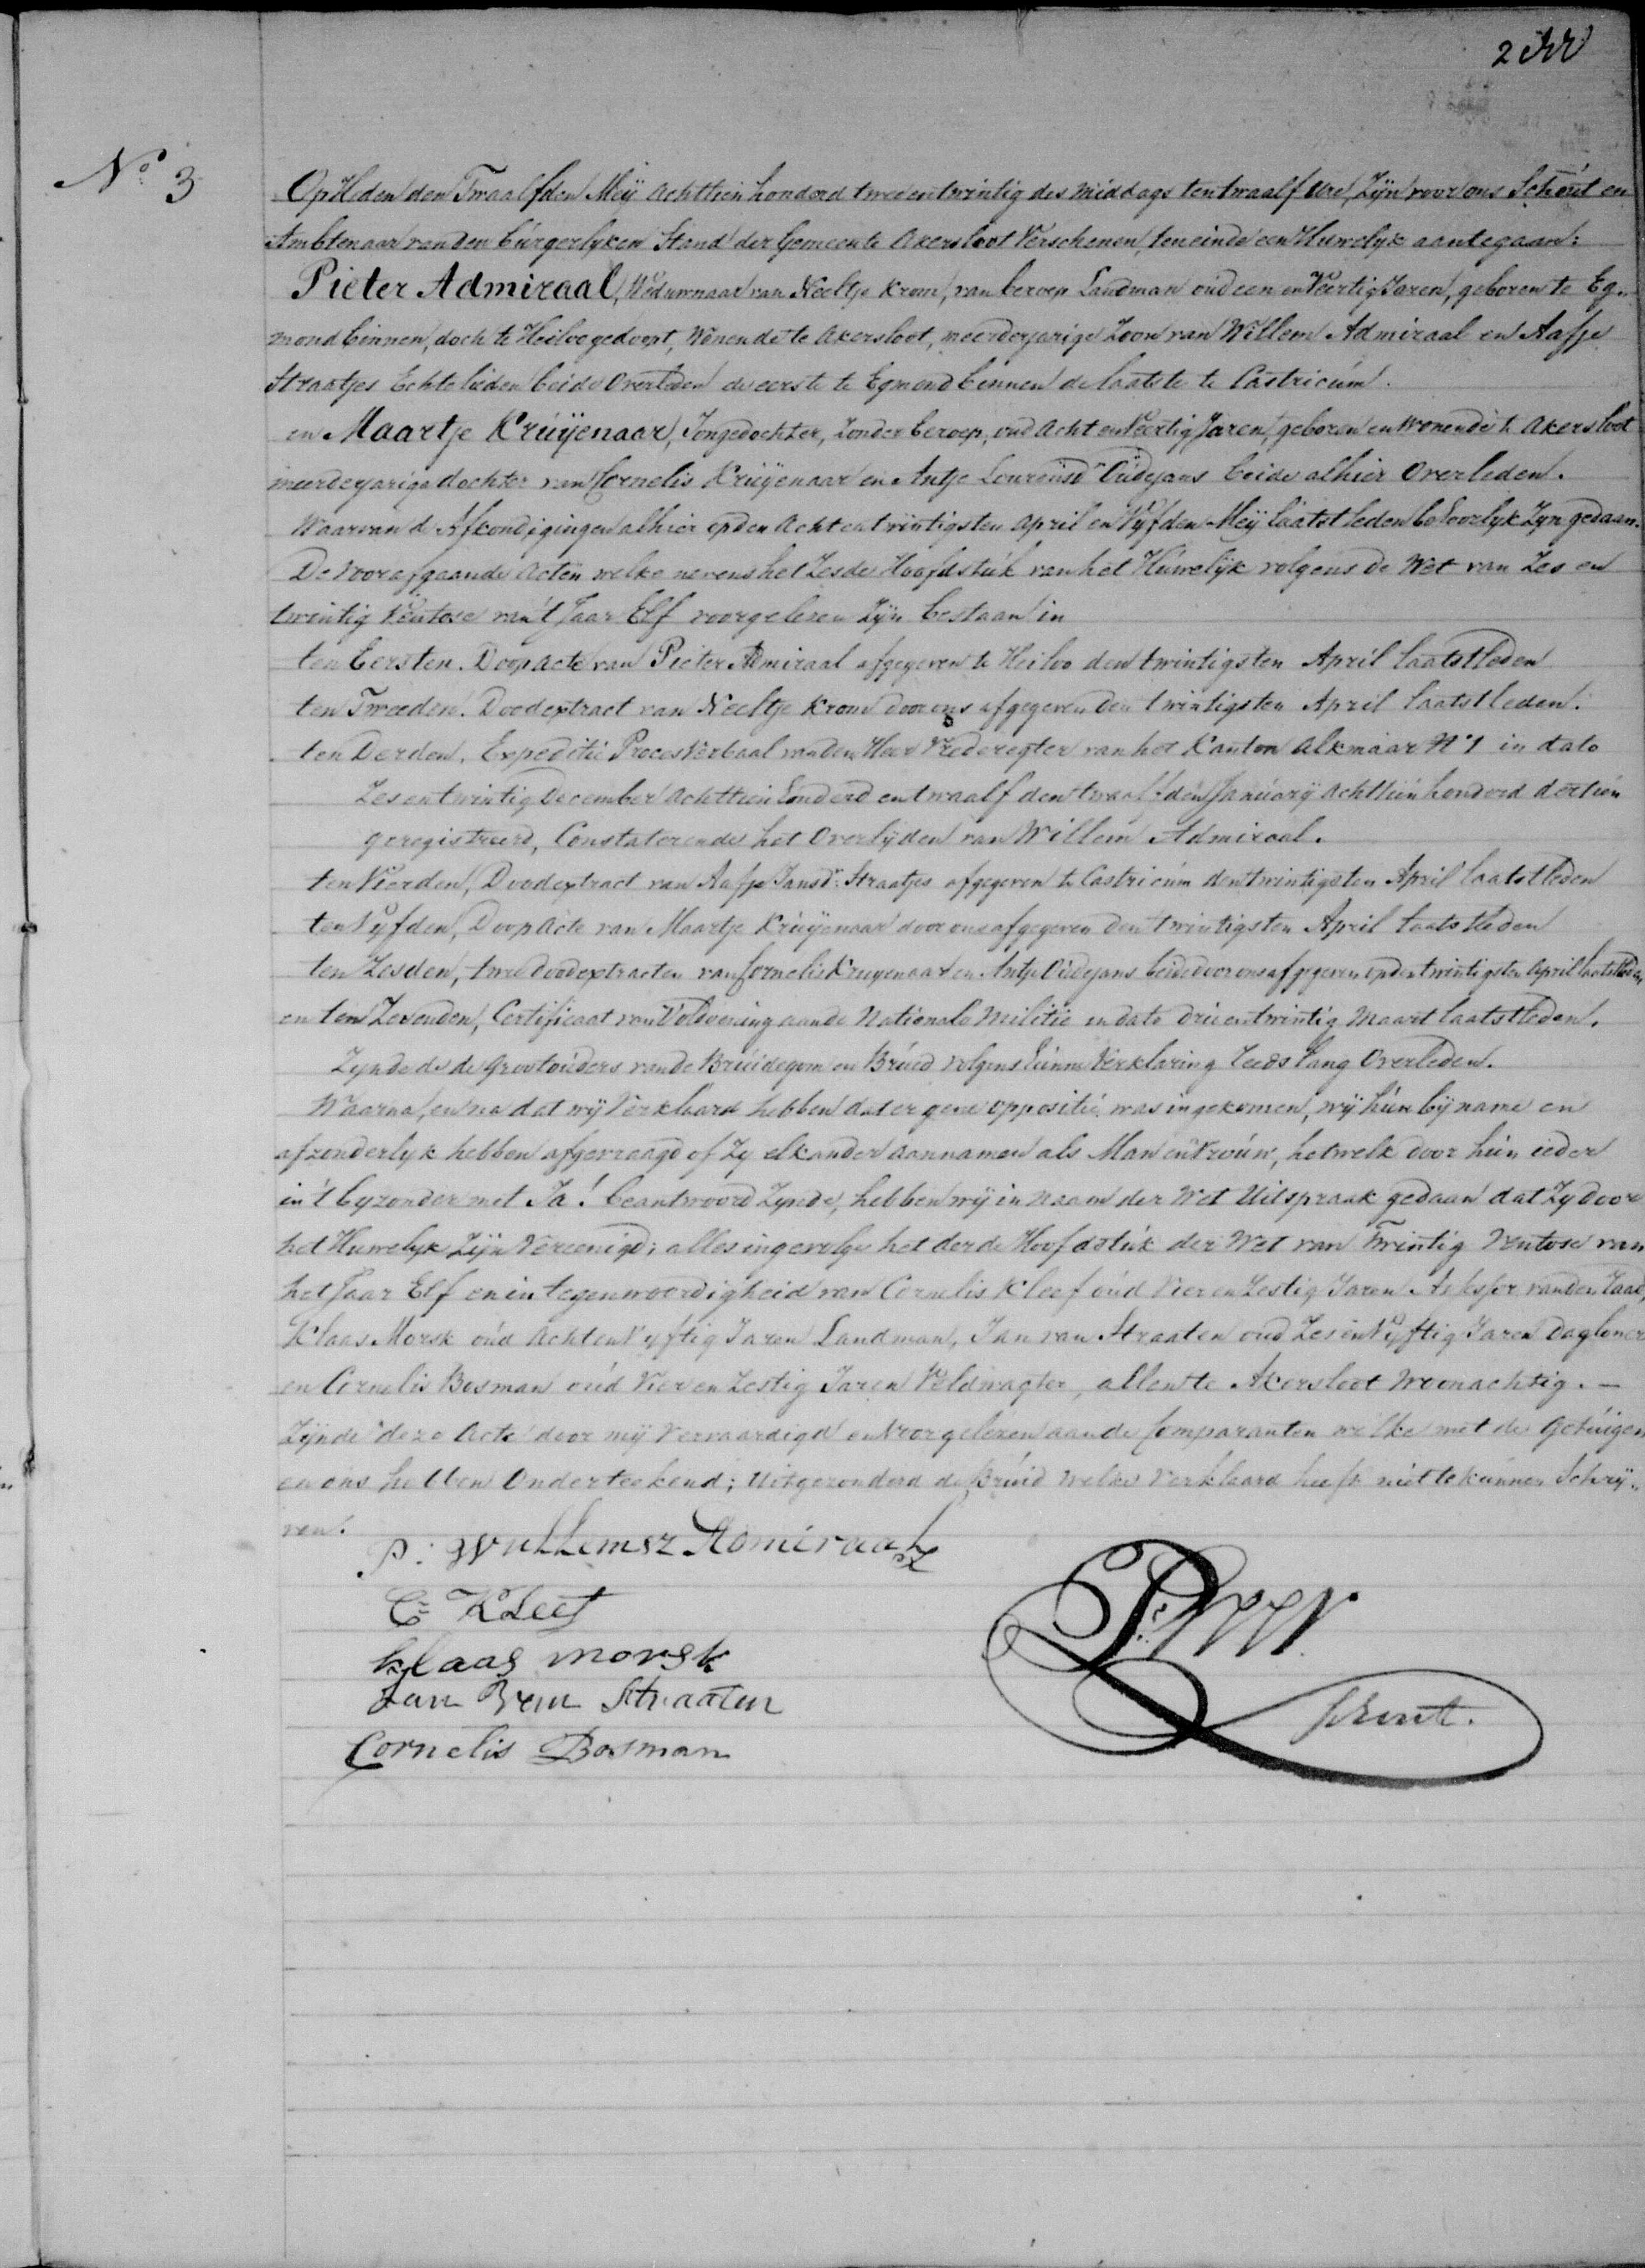 2
No 3
Op Heden den Twaalfden Meij achttien honderd twee en twintig des middags ten twaalf ure, Zijn voor ons Schout en
Ambtenaar van den burgerlyken Stand der Gemeente Akersloot Verschenen, ten einde een Huwelyk aantegaan:
Pieter Admiraal, Weduwnaar van Neeltje Krom, van beroep Landman oud een en Veertig Jaren, geboren te Eg„
mond binnen, doch te Heiloo gedoopt, Wonende te Akersloot, meerderjarige Zoon van Willem Admiraal en Aafje
Straatjes Echtelieden beide Overleden de eerste te Egmond binnen de laatste te Castricum.
en Maartje Kruijenaar, Jongedochter, Zonder beroep, oud Acht en Veertig Jaren, geboren en Wonende te Akersloot
meerderjarige dochter van Cornelis Kruijenaar en Antje Lourensdr Oudejans beide alhier Overleden.
Waarvan de Afkondigingen alhier op den Acht en twintigsten April en Vijfden Meij laatstleden behoorlyk Zyn gedaan.
De voorafgaande Acten welke nevens het Zesde Hoofdstuk van het Huwelyk volgens de Wet van Zes en
twintig Ventose van 't Jaar Elf voorgelezen Zijn bestaan in
ten Eersten. Doop Acte van Pieter Admiraal afgegeven te Heiloo den twintigsten April laatstleden
ten Tweeden. Doodextract van Neeltje Krom door ons afgegeven den twintigsten April laatstleden.
ten Derden, Expeditie Proces Verbaal van den Heer Vrederegter van het Kanton Alkmaar No 1 in dato
Zes en twintig December achttien honderd en twaalf den twaalfden Januarij achttien honderd dertien
geregistreerd, Constaterende het Overlijden van Willem Admiraal.
ten Vierden, Doodextract van Aafje Jansdr: Straatjes afgegeven te Castricum den twintigsten April laatstleden
ten Vyfden, Doop Acte van Maartje Kruijenaar door ons afgegeven den twintigsten April laatstleden
ten Zesden, twee doodextracten van Cornelis Kruyenaar en Antje Oudejans beide door ons afgegeven op den twintigsten April laatstleden
en ten Zevenden, Certificaat van Voldoening aan de Nationale Militie in dato drie en twintig Maart laatstleden.
Zynde de de Grootouders van de Bruidegom en Bruid volgens hunne Verklaring reeds lang Overleden.
Waarna, en na dat wij Verklaard hebben dat er gene oppositie was ingekomen, wij hun bij name en
afzonderlyk hebben afgevraagd of Zy elkander aannamen als Man en Vrouw, hetwelk door hun ieder
in 't byzonder met Ja! beantwoord Zynde, hebben wij in Naam der Wet Uitspraak gedaan dat Zy door
het Huwelyk Zijn Vereenigd; alles ingevolge het derde Hoofdstuk der Wet van Twintig Ventose van
het Jaar Elf en in tegenwoordigheid van Cornelis Kleef oud Vier en Zestig Jaren Assessor van den Raad,
Klaas Morsk oud Acht en Vyftig Jaren Landman, Jan van Straaten oud Zes en Vyftig Jaren Dagloner
en Cornelis Bosman oud Vier en Zestig Jaren Veldwagter, allen te Akersloot Woonachtig. —
Zijnde deze Acte door mij Vervaardigd en Voorgelezen aan de Comparanten welke met de Getuigen
en ons hebben Onderteekend; Uitgezonderd de Bruid welke Verklaard heeft niet te kunnen Schrij„
ven.
P: Wullemsz Admiraal
Cs Kleef
Klaas morsk
Jan Van Straaten
Cornelis Bosman
Schout.